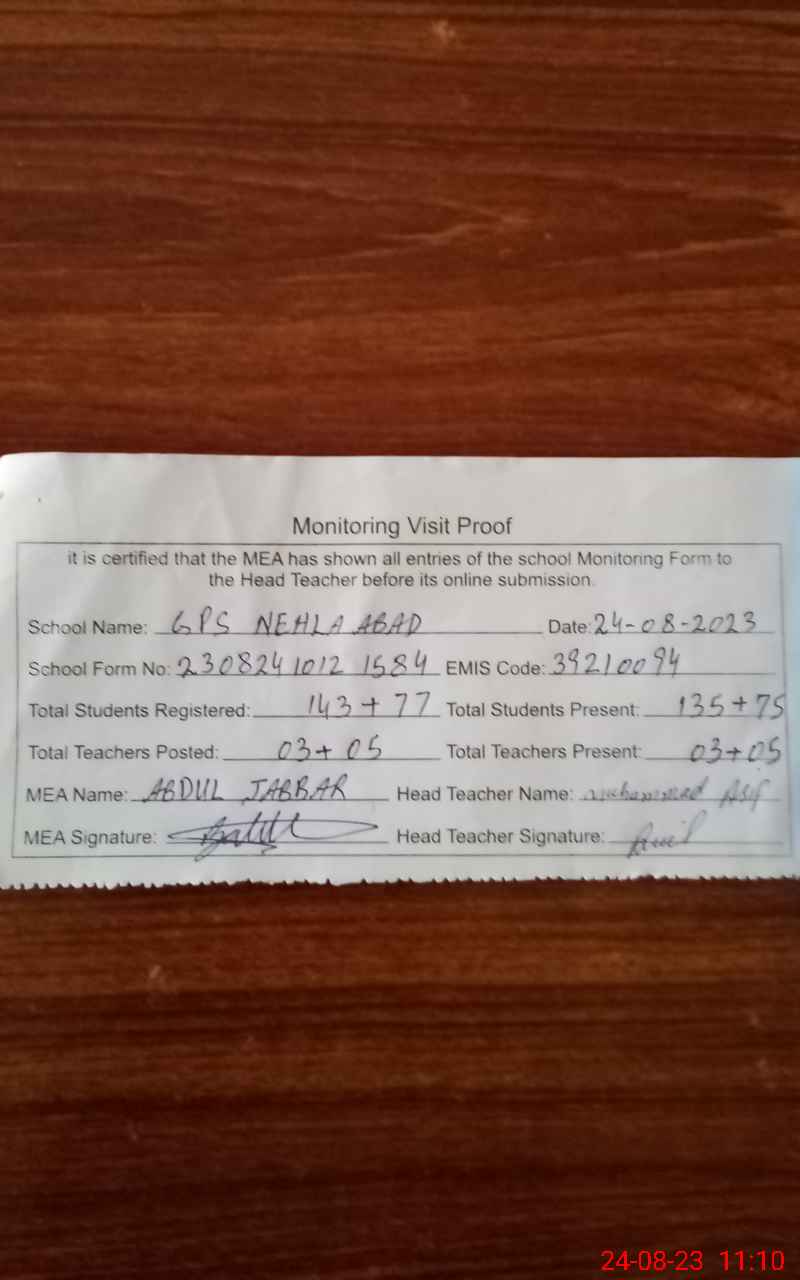 Monitoring Visit Proof
it is certified that the MEA has shown all entries of the school Monitoring Form to
the Head Teacher before its online submission.
School Name: GPS NEHLA ABAD Date: 24-08-2023
School Form No: 230824 1012 1584 EMIS Code: 39210094
Total Students Registered: 143 + 77 Total Students Present: 135 + 75
Total Teachers Posted: 03 + 05 Total Teachers Present: 03 + 05
MEA Name: ABDUL JABBAR Head Teacher Name: muhammad Asif
MEA Signature: Head Teacher Signature:
24-08-23 11:10